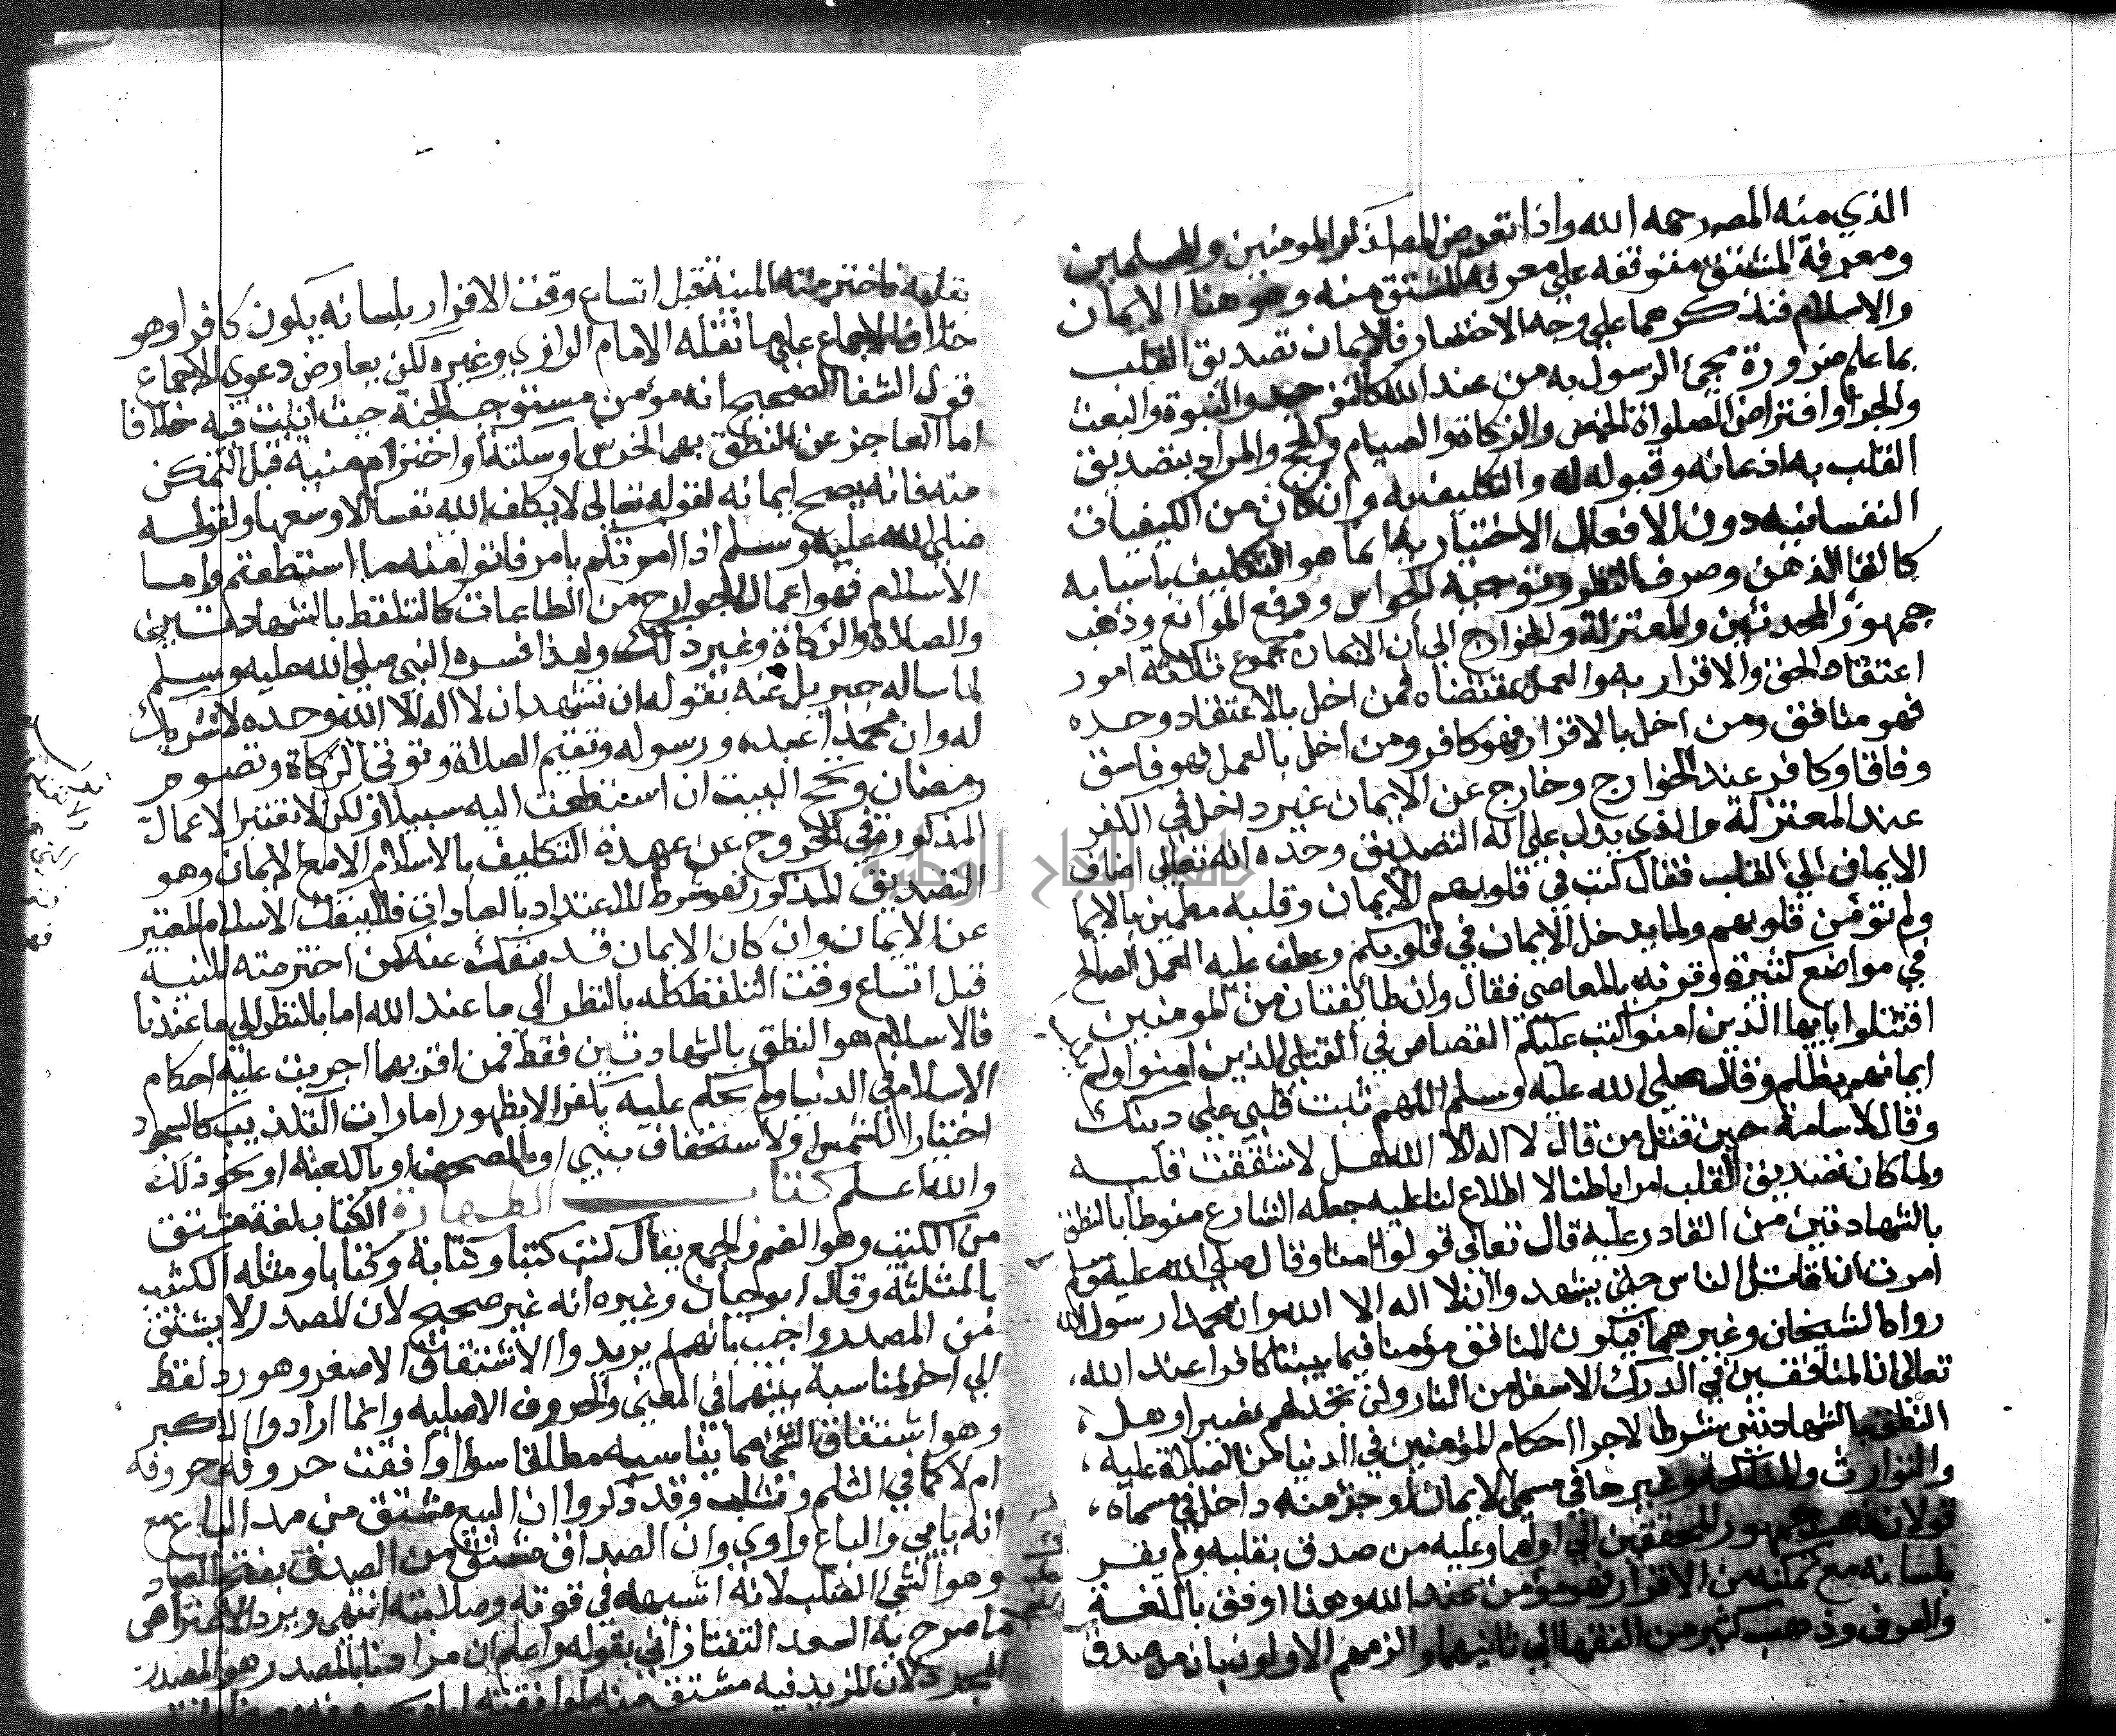 الذي منه المصدر رحمه الله واذا تعرض المص لذكر المومنين والمسلمين
ومعرفة المشتق متوقفه على معرفة المشتق منه وهو هنا الايمان
والاسلام فنذكرهما على وجه الاختصار فالايمان تصديق القلب
بما علم ضرورة مجئ الرسول به من عند الله كالتوحيد والنبوة والبعث
والجزا وافتراض الصلواة الخمس والزكاة والصيام والحج والمراد بتصديق
القلب به اذعانه وقبوله له والتكليف به وان كان من الكيفيات
النفسانيه دون الافعال الاختياريه انما هو التكليف باسبابه
كالقا الذهن وصرف النظر وتوجيه الحواس ورفع الموانع وذهب
جمهور المحدثين والمعتزلة والخوارج الى أن الايمان مجموع ثلاثة امور
اعتقاد الحق والاقرار به والعمل بمقتضاه فمن اخل بالاعتقاد وحده
فهو منافق ومن اخل بالاقرار فهو كافر ومن اخل بالعمل فهو فاسق
وفاقا وكافر عند الخوارج وخارج عن الايمان غير داخل في الكفر
عند المعتزلة والذي يدل على انه التصديق وحده انه تعالى اضاف
الايمان الى القلب فقال كتب في قلوبهم الايمان وقلبه مطمين بالايما
ولم تؤمن قلوبهم ولما يدخل الايمان في قلوبكم وعطف عليه العمل الصالح
في مواضع كثيرة وقرنه بالمعاصي فقال وان طائفتان من المومنين
اقتتلوا يايها الذين امنوا كتب عليكم القصاص في القتلى الذين امنوا ولم
ايمانهم بظلم وقال صلى الله عليه وسلم اللهم ثبت قلبي على دينك
وقال لاسامة حين قتل من قال لا اله الا الله هل لا شققت قلبه
ولما كان تصديق القلب امرا باطنا لا اطلاع لنا عليه جعله الشارع منوطا بالنطق
بالشهادتين من القادر عليه قال تعالى قولوا امنا وقال صلى الله عليه وسلم
امرت ان اقاتل الناس حتى يشهدوا ان لا اله الا الله وان محمدا رسول الله
رواه الشيخان وغيرهما فيكون المنافق مؤمنا فيما بيننا كافرا عند الله
تعالى ان المنافقين في الدرك الاسفل من النار ولن تجد لهم نصيرا وهل
النطق بالشهادتين شرط لاجرا احكام المؤمنين في الدنيا من الصلاة عليه
والتوارث والمناكحة وغيرها في مسمى الايمان او جزمنه داخل في مسماه
قولان ذهب جمهور المحققين الى اولهما وعليه من صدق بقلبه ولم يقر
بلسانه مع تمكنه من الاقرار فهو مؤمن عند الله وهذا اوفق باللغة
والعرف وذهب كثير من الفقها الى ثانيهما والزمهم الاولون بان من صدق
بقلبه فاخترمته المنية قبل اتساع وقت الاقرار بلسانه يكون كافرا وهو
خلاف الاجماع على ما نقله الامام الرازي وغيره لكن يعارض دعوى الاجماع
قول الشفا الصحيح انه مؤمن مستوجب للجنة حيث اثبت فيه خلافا
اما العاجز عن النطق بهما لخرس او سكتة او اخترام منية قبل التمكن
منه فانه يصح ايمانه لقوله تعالى لا يكلف الله نفسا الا وسعها ولقوله
صلى الله عليه وسلم اذا امرتكم بامر فاتوا منه ما استطعتم واما
الاسلام فهو اعمال الجوارح من الطاعات كالتلفظ بالشهادتين
والصلاة والزكاة وغير ذلك ولهذا فسره النبي صلى الله عليه وسلم
لما ساله جبريل عنه بقوله ان تشهد ان لا اله الا الله وحده لا شريك
له وان محمدا عبده ورسوله وتقيم الصلاة وتوتي الزكاة وتصوم
رمضان وتحج البيت ان استطعت اليه سبيلا ولكن لا تعتبر الاعمال
المذكورة في الخروج عن عهدة التكليف بالاسلام الا مع الايمان وهو
التصديق المذكور فهو شرط للاعتداد بالعبادات فلا ينفك الاسلام المعتبر
عن الايمان وان كان الايمان قد ينفك عنه كمن اخترمته المنية
قبل اتساع وقت التلفظ كله بالنظر الى ما عند الله اما بالنظر الى ما عندنا
فالاسلام هو النطق بالشهادتين فقط فمن اقر بهما اجريت عليه احكام
الاسلام في الدنيا ولم يحكم عليه بكفر الا بظهور امارات التكذيب كالسجود
اختيارا للشمس او الاستخفاف بنبي او بالمصحف او بالكعبة او نحو ذلك
والله اعلم كتاب الطهارة الكتاب لغة مشتق
من الكتب وهو الضم والجمع يقال كتبت كتبا وكتابة وكتابا ومثله الكثب
بالمثلثة وقال ابو حيان وغيره انه غير صحيح لان المصدر لا يشتق
من المصدر واجيب بانهم لم يريدوا الاشتقاق الاصغر وهو رد لفظ
الى اخر لمناسبة بينهما في المعنى والحروف الاصليه وانما ارادوا الاكبر
وهو اشتقاق الشئ مما يناسبه مطلقا سوا وافقت حروفه حروفه
ام لا كما في الثلم وثلب وقد ذكروا ان البيع مشتق من مد الباع مع
انه يايي والباع واوي وان الصداق مشتق من الصدق بفتح الصاد
وهو الشئ الصلب لانه اشبهه في قوته وصلابته انتهى ويرد الاعتراض
ما صرح به السعد التفتازاني بقوله واعلم ان مرادنا بالمصدر هو المصدر
المجرد لان المزيد فيه مشتق منه لموافقته اياه بحروفه ومعناه